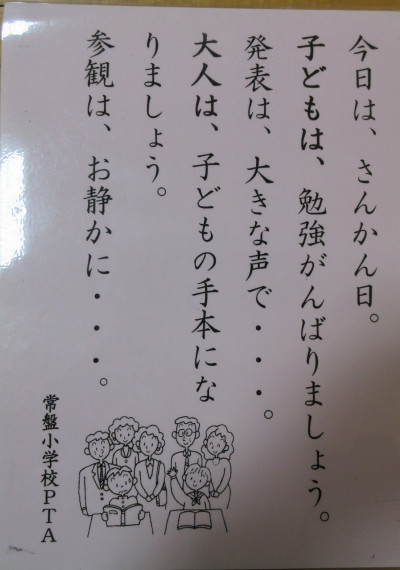 今日は、さんかん日。
子どもは、勉強がんばりましょう。
発表は、大きな声で・・・。
大人は、子どもの手本にな
りましょう。
参観は、お静かに・・・。
常盤小学校PTA